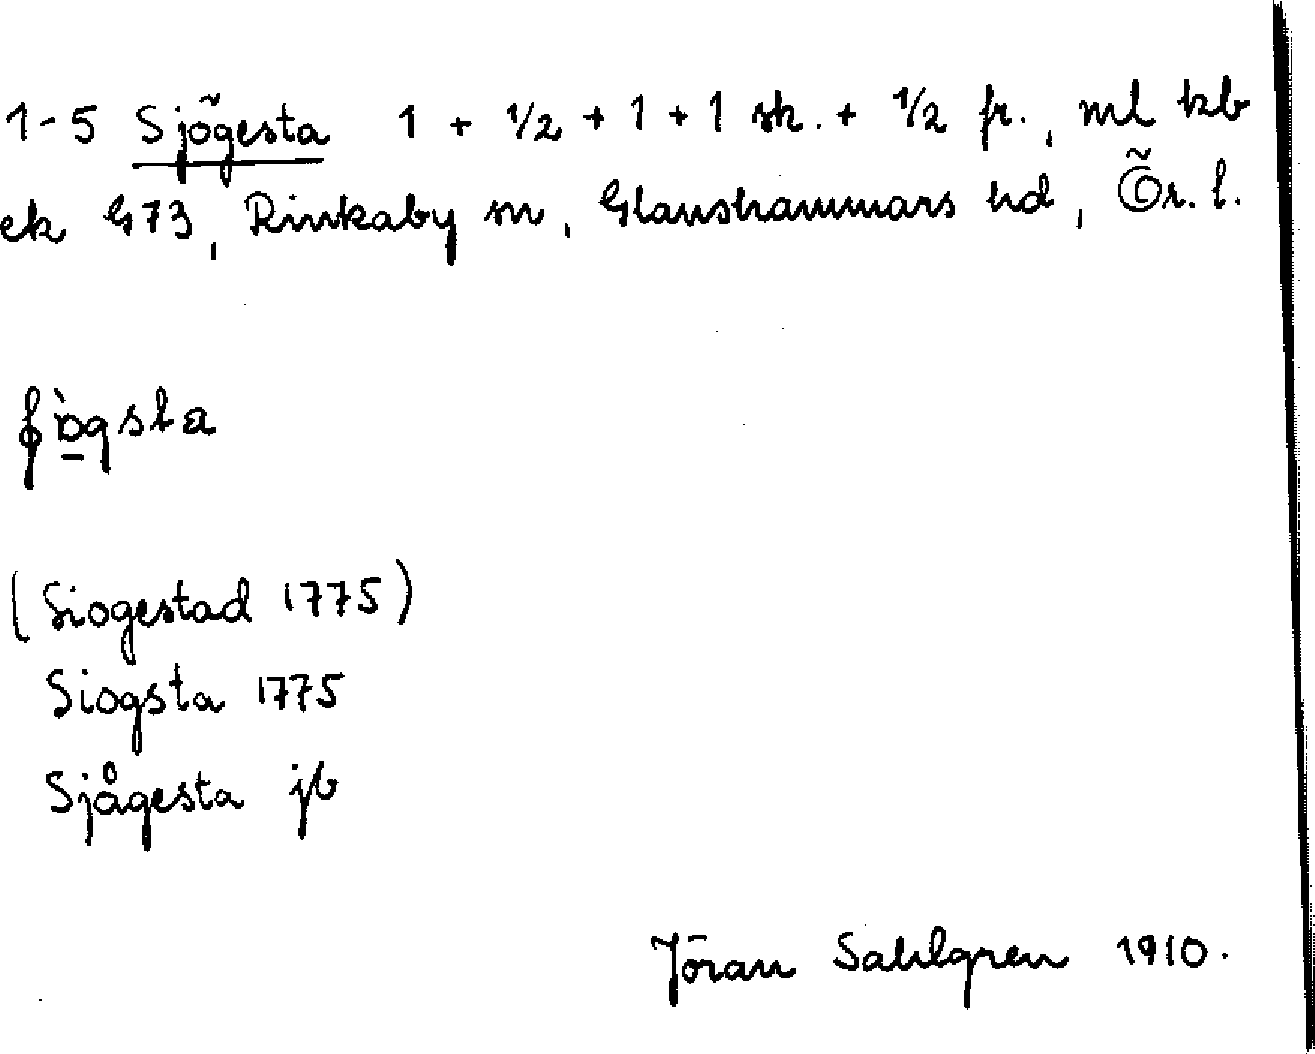 1-5 Sjögesta 1 + 1/2 + 1 + 1 sk. + 1/2 fr., ml kb
ek G73, Rinkaby sn, Glanshammars hd, Ör. l.
(Siogestad 1775)
Siogsta 1775
Sjågesta jb
Jöran Sahlgren 1910.